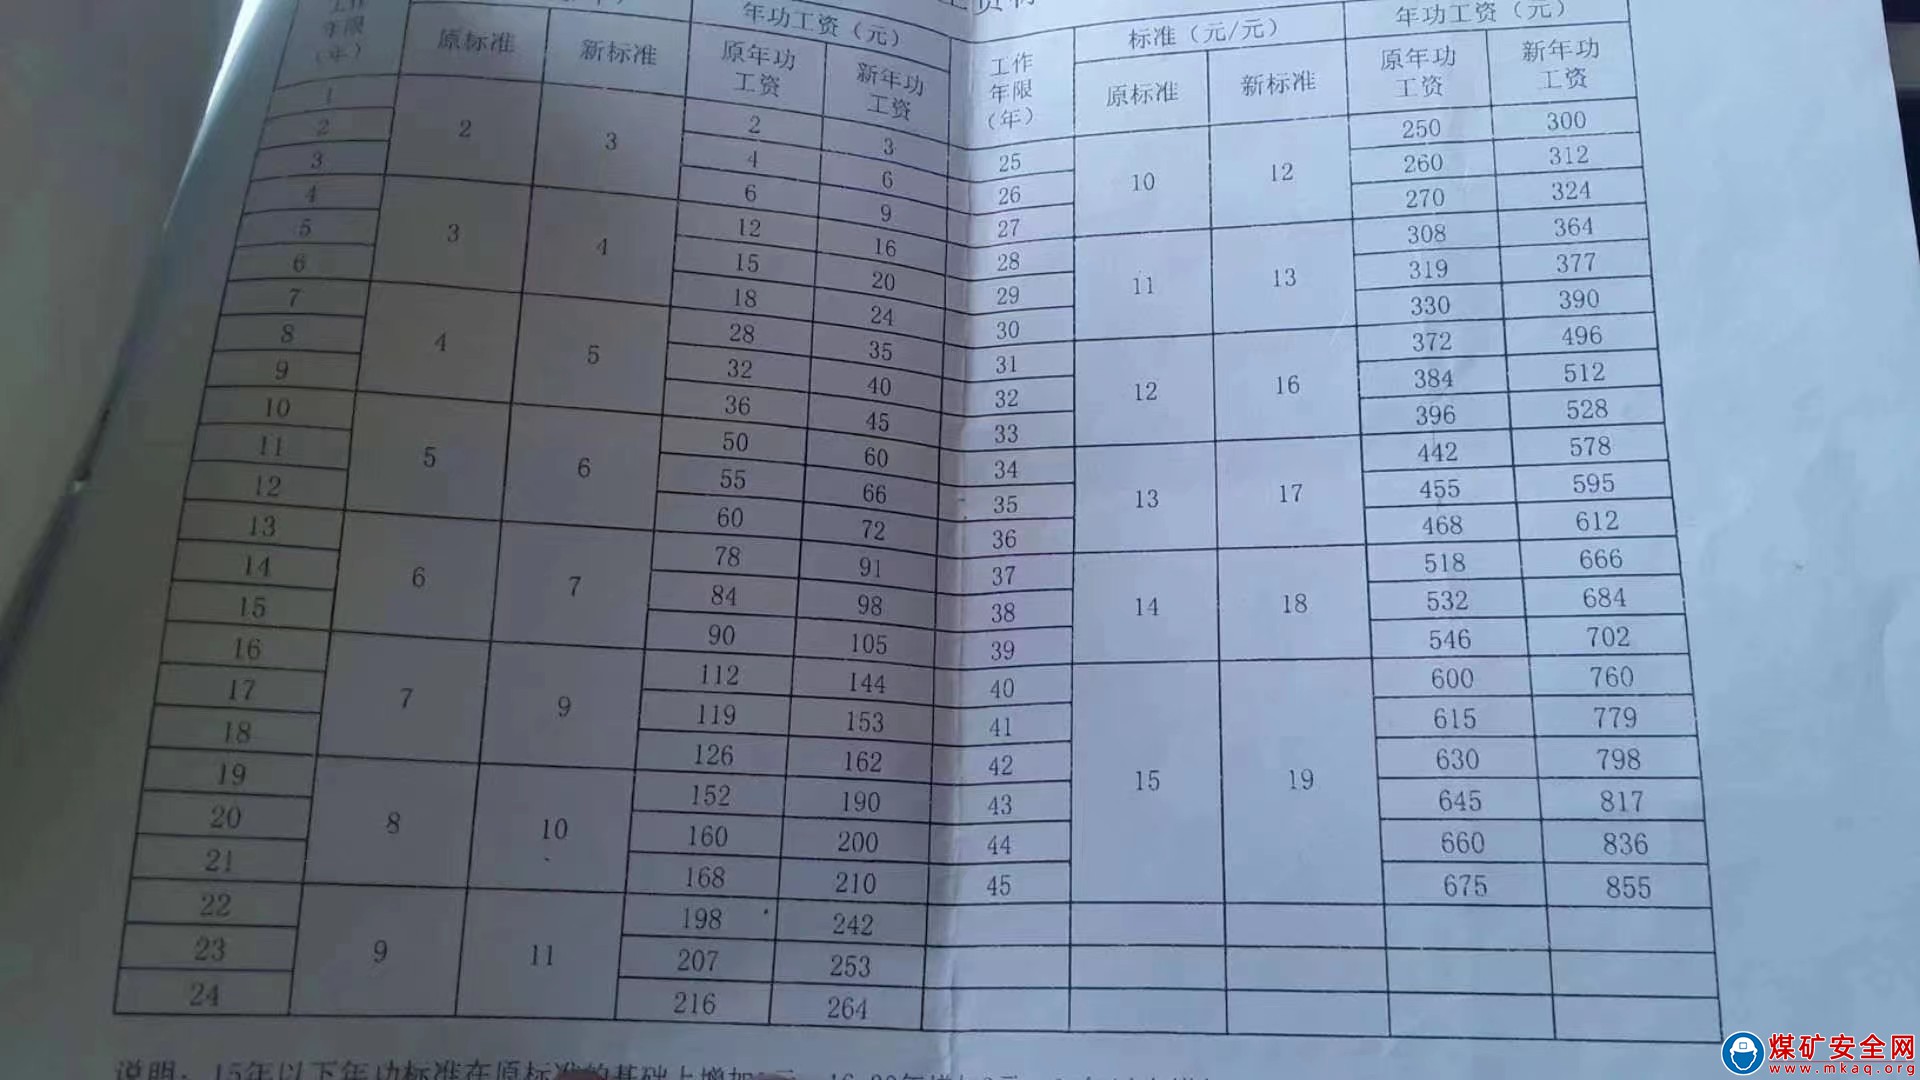 工作年限（年） 原标准 新标准 年功工资（元） 原年功工资 新年功工资
工作年限（年） 标准（元/元） 原标准 新标准 年功工资（元） 原年功工资 新年功工资
1 2 3 2 3
2 4 6
3 6 9
4 3 4 12 16
5 15 20
6 18 24
7 4 5 28 35
8 32 40
9 36 45
10 5 6 50 60
11 55 66
12 60 72
13 6 7 78 91
14 84 98
15 90 105
16 7 9 112 144
17 119 153
18 126 162
19 8 10 152 190
20 160 200
21 168 210
22 9 11 198 242
23 207 253
24 216 264
25 10 12 250 300
26 260 312
27 270 324
28 11 13 308 364
29 319 377
30 330 390
31 12 16 372 496
32 384 512
33 396 528
34 13 17 442 578
35 455 595
36 468 612
37 14 18 518 666
38 532 684
39 546 702
40 15 19 600 760
41 615 779
42 630 798
43 645 817
44 660 836
45 675 855
说明：15年以下年功标准在原标准的基础上增加
煤矿安全网
www.mkaq.org